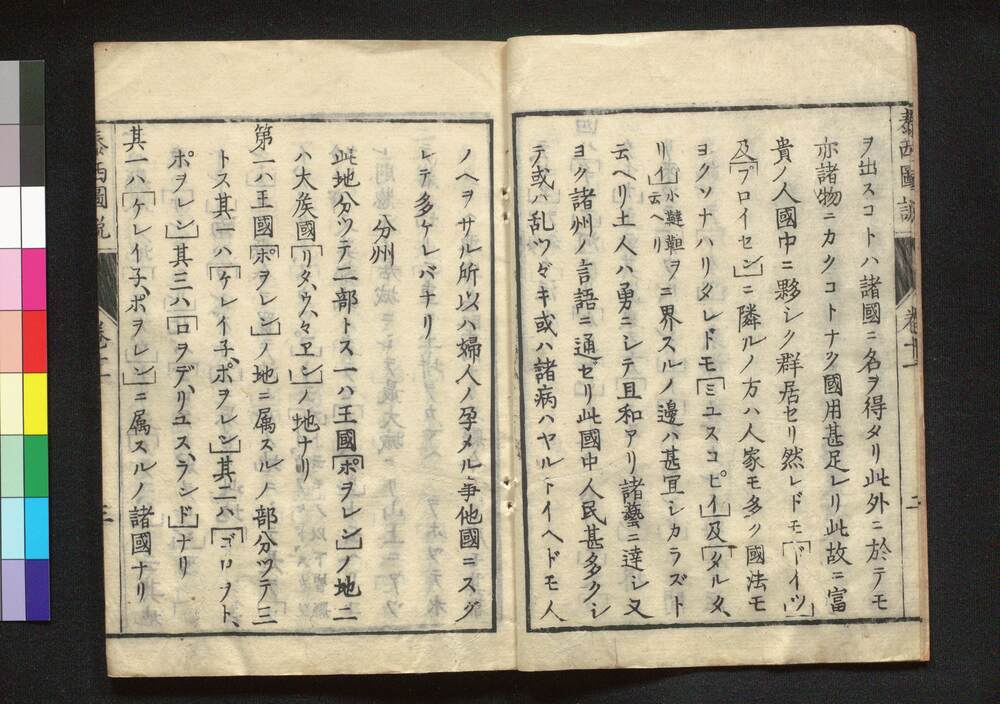 泰西圖説
巻十一
二
ヲ出スコトハ諸國ニ名ヲ得タリ此外ニ於テモ
亦諸物ニカクコトナク國用甚足レリ此故ニ冨
貴ノ人國中ニ夥シク群居セリ然レドモ「ドイツ」
及「プロイセン」ニ隣ルノ方ハ人家モ多ク國法モ
ヨクソナハリタレドモ「ミユスコピイ」及「タルタ
リイ」小韃靼ト云ヘリヲニ界スルノ邊ハ甚冝シカラズト
云ヘリ土人ハ勇ニシテ且和アリ諸藝ニ達シ又
ヨク諸州ノ言語ニ通ゼリ此國中人民甚多クシ
テ或ハ乱ツヾキ或ハ諸病ハヤルトイヘドモ人
ノヘヲサル所以ハ婦人ノ孕メル事他國ニスグ
レテ多ケレバナリ
分州
此地分ツテ二部トス一ハ王國「ポヲレン」ノ地二
ハ大矦國「リタウハヤエン」ノ地ナリ
第一ハ王國「ポヲレン」ノ地ニ属スルノ部分ツテ三
トス其一ハ「ケレイ子、ポヲレン」其二ハ「ゴロヲト、
ポヲレン」其三ハ「ロヲデ、リユス、ランド」ナリ
其一ハ「ケレイ子、ポヲレン」ニ属スルノ諸國ナリ
泰西圖説
巻十一
三